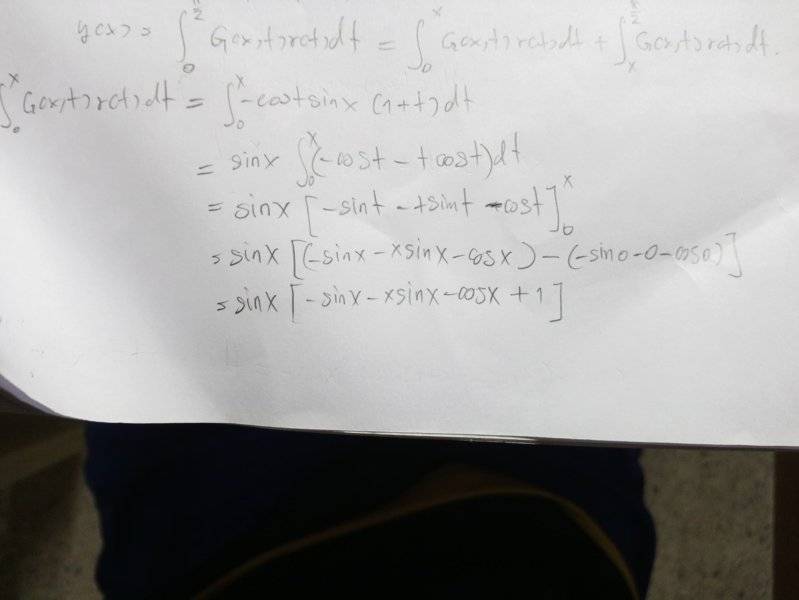 y(x) = ∫₀^{π/2} G(x,t) r(t) dt = ∫₀^x G(x,t) r(t) dt + ∫ₓ^{π/2} G(x,t) r(t) dt.
∫₀^x G(x,t) r(t) dt = ∫₀^x -cost sinx (1+t) dt
= sinx ∫₀^x (-cost - tcost) dt
= sinx [-sint - tsint - cost]₀^x
= sinx [(-sinx - xsinx - cosx) - (-sin0 - 0 - cos0)]
= sinx [-sinx - xsinx - cosx + 1]